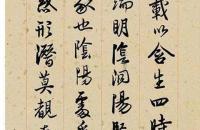 載以含生四時
端明陰洞陽賢
也陰陽處乎
惑形潛莫覩在